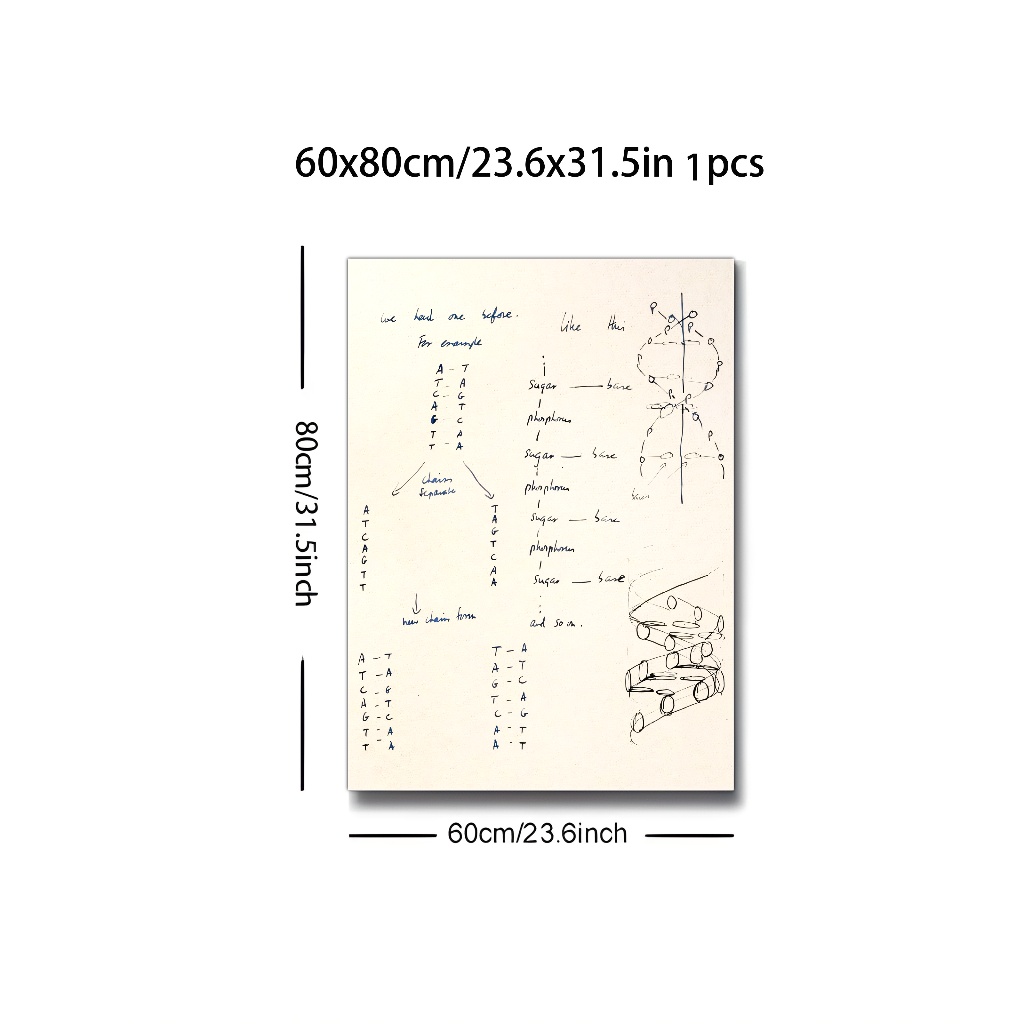 60x80cm/23.6x31.5in 1pcs
80cm/31.5inch
we had one before.
For example
A - T
T - A
C - G
A T
G C
T A
T - A
chains
separate
A
T
C
A
G
T
T
T
A
G
T
C
A
A
new chains form
A - T
T - A
C - G
A - T
G - C
T - A
T - A
T - A
A - T
G - C
T - A
C - G
A - T
A - T
Like this
sugar — base
phosphorus
sugar — base
phosphorus
sugar — base
phosphorus
sugar — base
and so on.
P
P P
P
P P
P P
60cm/23.6inch